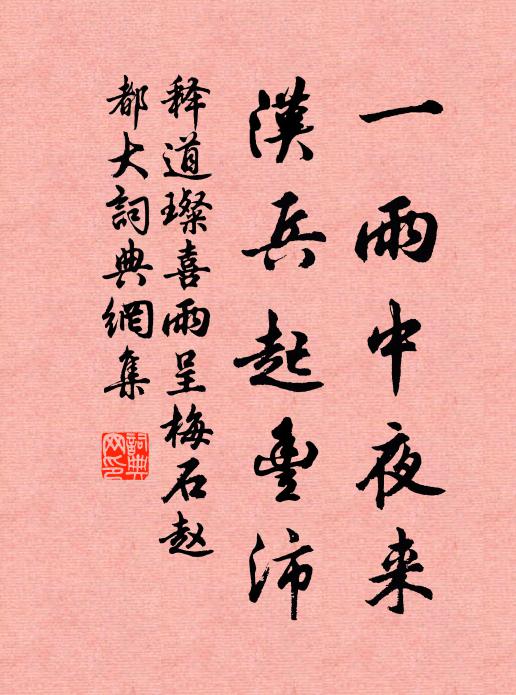 一雨中夜来
漢兵起豊沛
释道璨喜雨呈梅石赵
都大詞典網集
詞典网印